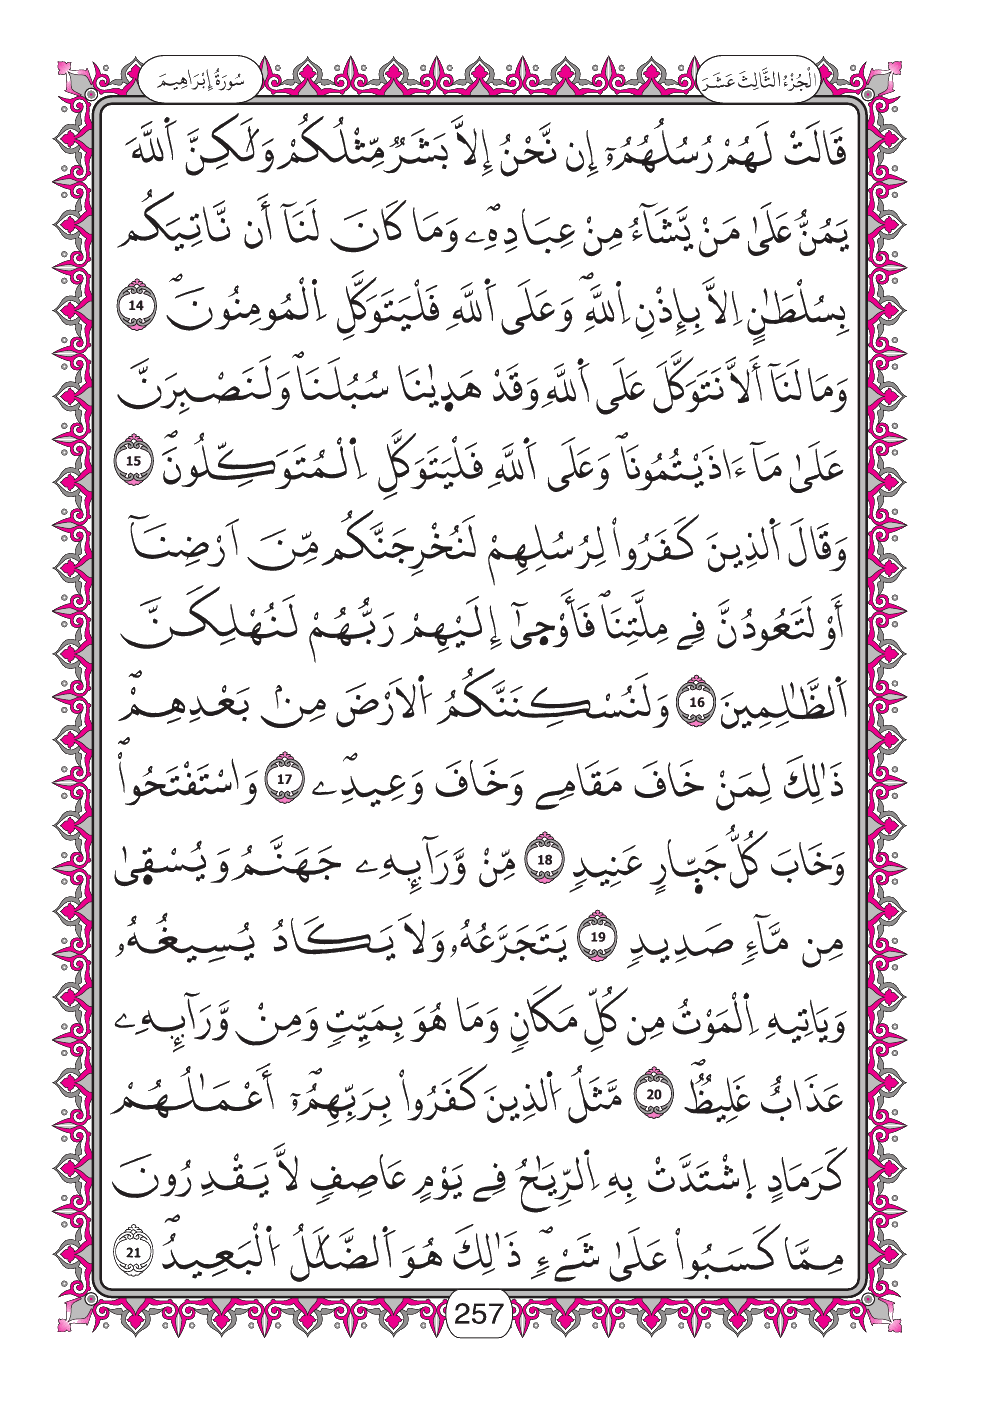 الْجُزْءُ الثَّالِثَ عَشَرَ
سُورَةُ إِبْرَاهِيمَ
قَالَتْ لَهُمْ رُسُلُهُمُۥٓ إِن نَّحْنُ إِلاَّ بَشَرٞ مِّثْلُكُمْ وَلَٰكِنَّ اَ۬للَّهَ
يَمُنُّ عَلَىٰ مَنْ يَّشَآءُ مِنْ عِبَادِهِۦۖ وَمَا كَانَ لَنَآ أَن نَّاتِيَكُم
بِسُلْطَٰنٍ اِلاَّ بِإِذْنِ اِ۬للَّهِۖ وَعَلَى اَ۬للَّهِ فَلْيَتَوَكَّلِ اِ۬لْمُومِنُونَۖ 14
وَمَا لَنَآ أَلاَّ نَتَوَكَّلَ عَلَى اَ۬للَّهِ وَقَدْ هَدۭيٰنَا سُبُلَنَاۖ وَلَنَصْبِرَنَّ
عَلَىٰ مَآ ءَاذَيْتُمُونَاۖ وَعَلَى اَ۬للَّهِ فَلْيَتَوَكَّلِ اِ۬لْمُتَوَكِّلُونَۖ 15
وَقَالَ اَ۬لذِينَ كَفَرُواْ لِرُسُلِهِمْ لَنُخْرِجَنَّكُم مِّنَ اَرْضِنَآ
أَوْ لَتَعُودُنَّ فِے مِلَّتِنَاۖ فَأَوْحۭيٰٓ إِلَيْهِمْ رَبُّهُمْ لَنُهْلِكَنَّ
اَ۬لظَّٰلِمِينَ 16 وَلَنُسْكِنَنَّكُمُ اُ۬لَارْضَ مِنۢ بَعْدِهِمْۖ
ذَٰلِكَ لِمَنْ خَافَ مَقَامِے وَخَافَ وَعِيدِۦۖ 17 وَاسْتَفْتَحُواْۖ
وَخَابَ كُلُّ جَبّۭارٍ عَنِيدٖ 18 مِّنْ وَّرَآئِهِۦ جَهَنَّمُ وَيُسْقۭيٰ
مِن مَّآءٖ صَدِيدٖ 19 يَتَجَرَّعُهُۥ وَلَا يَكَادُ يُسِيغُهُۥ
وَيَاتِيهِ اِ۬لْمَوْتُ مِن كُلِّ مَكَانٖ وَمَا هُوَ بِمَيِّتٖ وَمِنْ وَّرَآئِهِۦ
عَذَابٌ غَلِيظٞۖ 20 مَّثَلُ اُ۬لذِينَ كَفَرُواْ بِرَبِّهِمُۥٓۖ أَعْمَٰلُهُمْ
كَرَمَادٍ اِ۪شْتَدَّتْ بِهِ اِ۬لرِّيَٰحُ فِے يَوْمٍ عَاصِفٖ لاَّ يَقْدِرُونَ
مِمَّا كَسَبُواْ عَلَىٰ شَےْءٖۖ ذَٰلِكَ هُوَ اَ۬لضَّلَٰلُ اُ۬لْبَعِيدُۖ 21
257